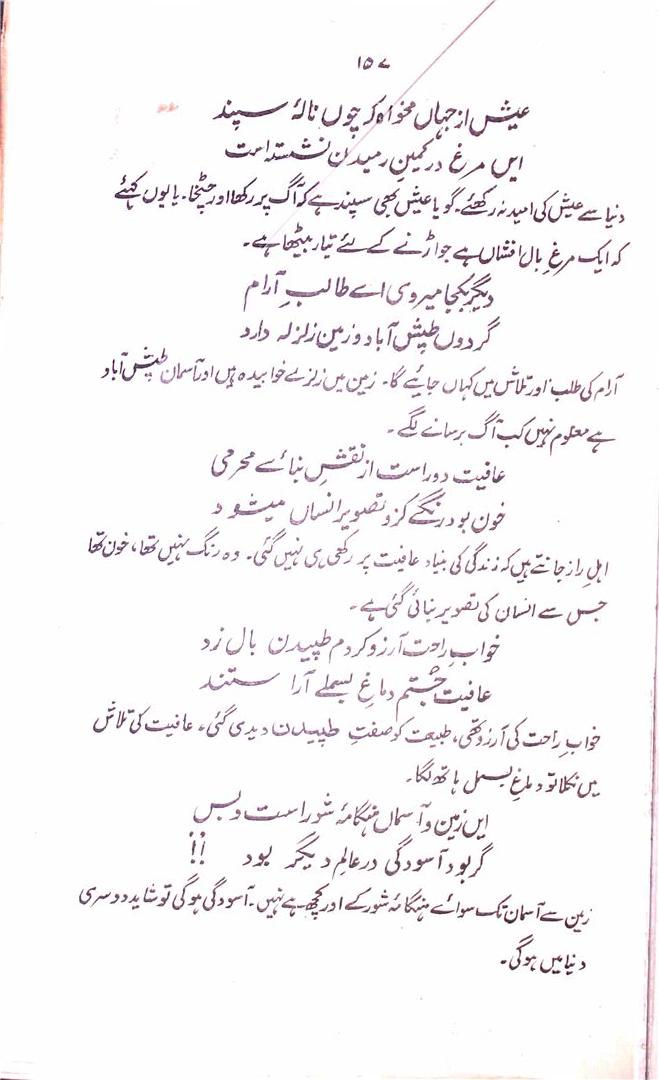 ۱۵۷
عیش از جہاں مخواہ کہ چوں نالۂ سپند
ایں مرغ در کمینِ رمیدن نشستہ است
دنیا سے عیش کی امید نہ رکھئے۔ گویا عیش بھی سپند ہے کہ آگ پر رکھا اور چٹخا۔ یا یوں کہئے
کہ ایک مرغِ بال افشاں ہے جو اڑنے کے لئے تیار بیٹھا ہے۔
دیگر بکجا میروی اے طالبِ آرام
گردوں طپش آباد و زمین زلزلہ دارد
آرام کی طلب اور تلاش میں کہاں جائیے گا۔ زمین میں زلزلے خوابیدہ ہیں اور آسمان طپش آباد
ہے معلوم نہیں کب آگ برسانے لگے۔
عافیت دور است از نقشِ بنائے محرمی
خون بود رنگے کزو تصویر انساں میشود
اہلِ راز جانتے ہیں کہ زندگی کی بنیاد عافیت پر رکھی ہی نہیں گئی۔ وہ رنگ نہیں تھا، خون تھا
جس سے انسان کی تصویر بنائی گئی ہے۔
خوابِ راحت آرزو کردم طپیدن بال زد
عافیت جستم دماغِ بسملے آراستند
خوابِ راحت کی آرزو تھی، طبیعت کو صفتِ طپیدن دیدی گئی۔ عافیت کی تلاش
میں نکلا تو دماغِ بسمل ہاتھ لگا۔
ایں زمین و آسماں ہنگامۂ شور است و بس
گر بود آسودگی در عالمِ دیگر بود !!
زمین سے آسمان تک سوائے ہنگامۂ شور کے اور کچھ ہے نہیں۔ آسودگی ہوگی تو شاید دوسری
دنیا میں ہوگی۔